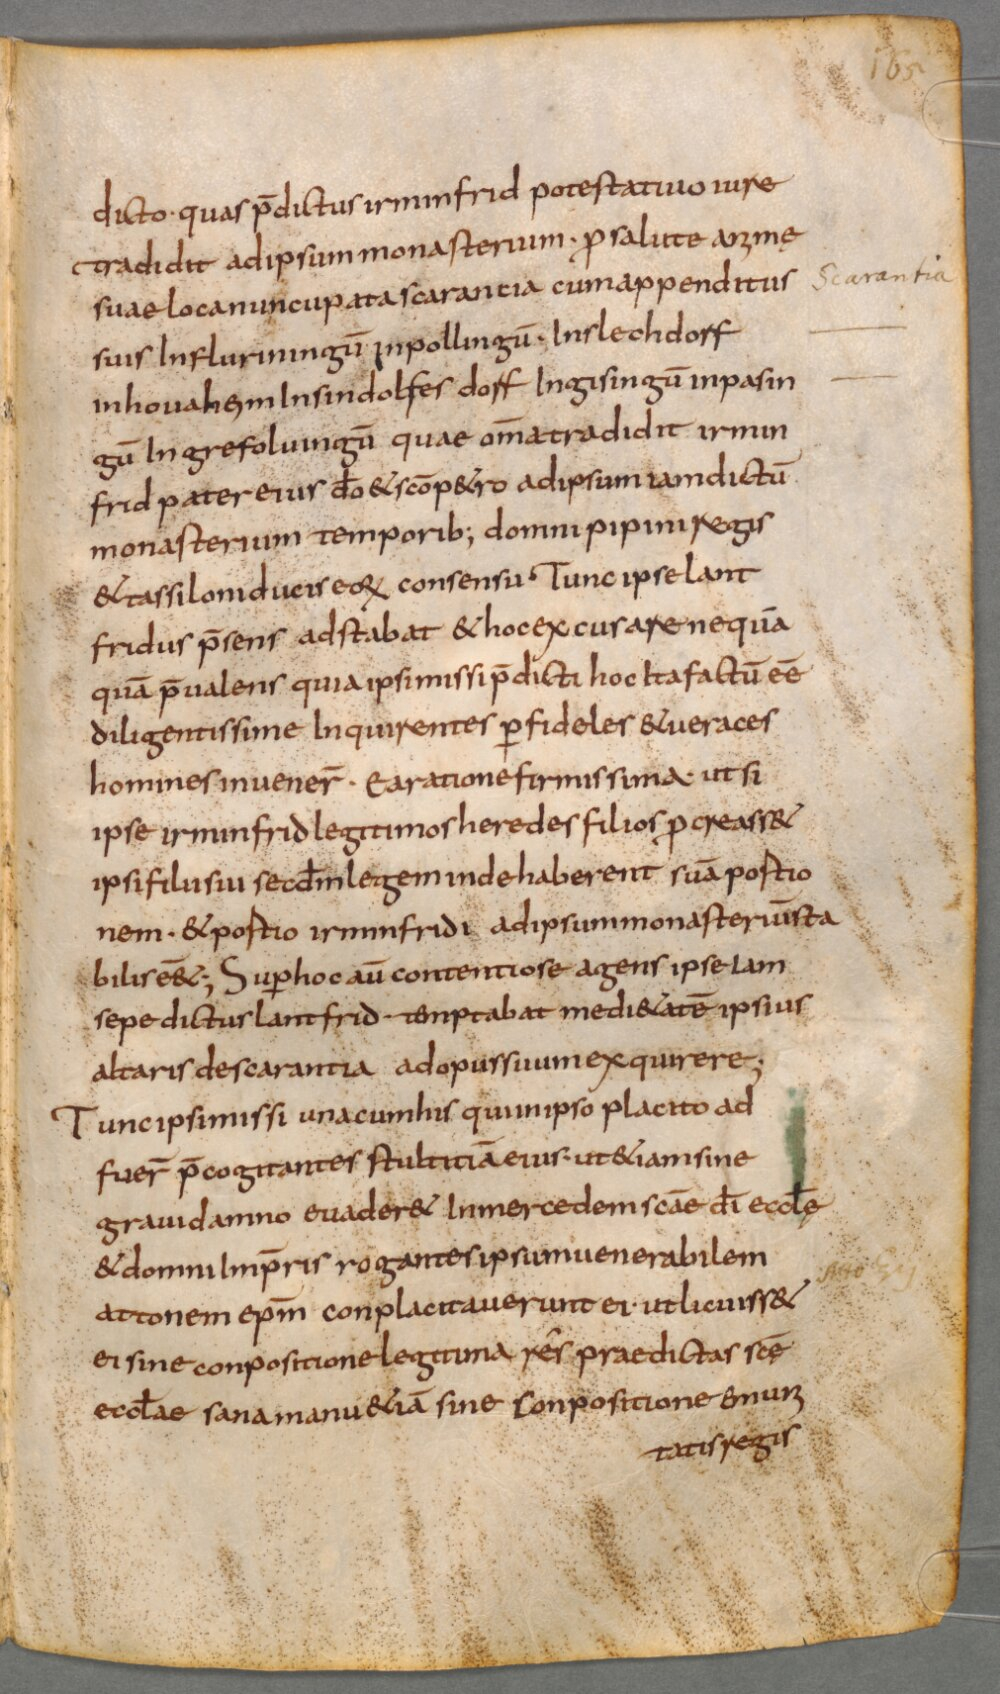 165
dicto· quas p̄dictus irminfrid potestatiuo iure
tradidit adipsum monasterium· ꝓ salute animę
suae loca nuncupata scarantia cum appenditus
Scarantia
suis Influriningū Inpollingū· Inslechdorf
inhouahem Insindolfes dorf Ingisingū inpasin
gū Ingrefoluingū quae om̄a tradidit irmin
frid pater eius d̄o &sc̄o p&ro adipsum iamdictū
monasterium temporib; domni pipini regis
&tassiloni ducis eoꝝ consensu· Tunc ipse lant
fridus p̄sens adstabat &hoc excusare nequā
quā p̄ualens quia ipsi missi p̄dicti hoc Ita factū eē
diligentissime Inquirentes ꝑ fideles &ueraces
homines inuener̄· Ea ratione firmissima· ut si
ipse irminfrid legitimos heredes filios ꝓcreass&
ipsi filii sui secd̄m legem inde haberent suā portio
nem· &portio irminfridi adipsum monasteriū sta
bilis eē&; Suꝑ hoc aū contentiose agens ipse Iam
sepe dictus lantfrid· temptabat medi&atē ipsius
altaris de scarantia ad opus suum exquirere;
Tunc ipsi missi una cum his qui inipso placito ad
fuer̄ p̄cogitantes stultitiā eius· ut &iam sine
graui damno euader& Inmercedem sc̄ae d̄i eccl̄ę
&domni Imp̄ris rogantes ipsum uenerabilem
attonem ep̄m conplacitauerunt ei· ut licuiss&
ei sine conpositione legitima res praedictas sc̄ę
eccl̄ae sana manu &iā sine conpositione emuni
tatis regis